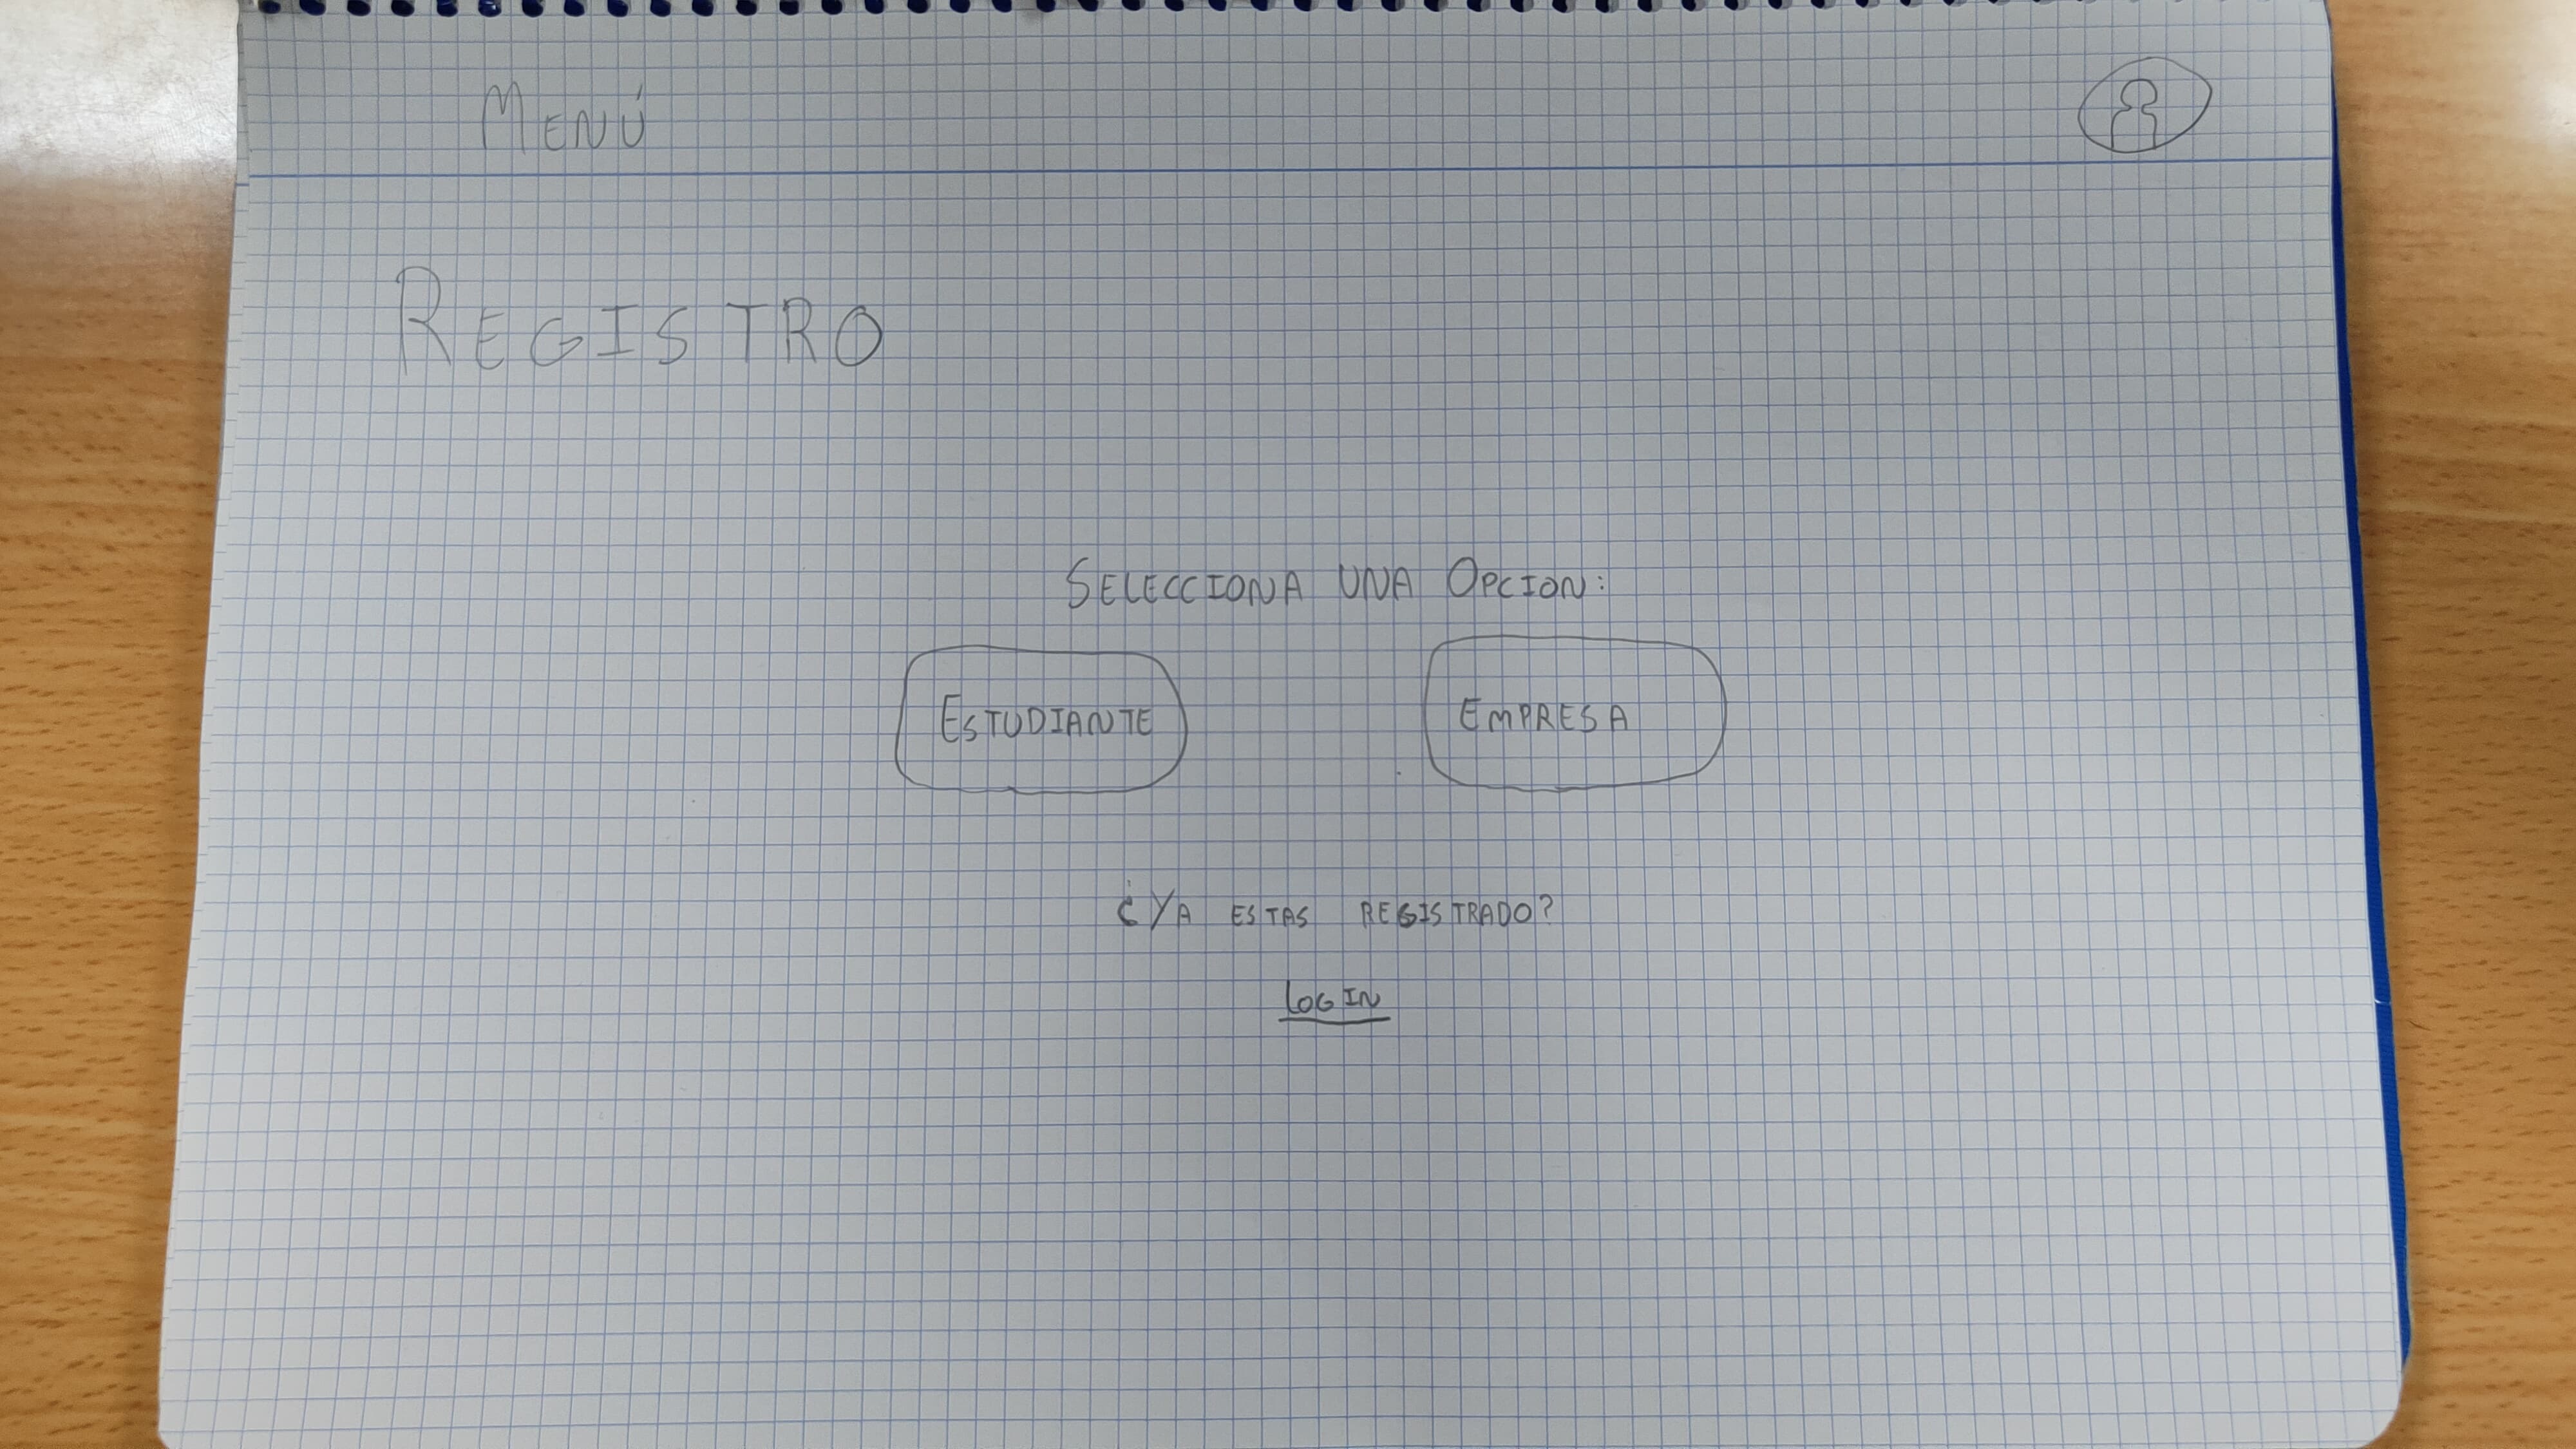 MENÚ
REGISTRO
SELECCIONA UNA OPCION:
ESTUDIANTE EMPRESA
¿YA ESTAS REGISTRADO?
LOGIN